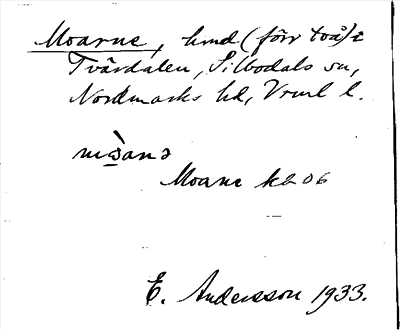 Moarne, hmd (förr två) i
Tvärdalen, Silbodals sn,
Nordmarks hd, Vrml l.
mò̱̱anə
Moane k206
E. Andersson 1933.